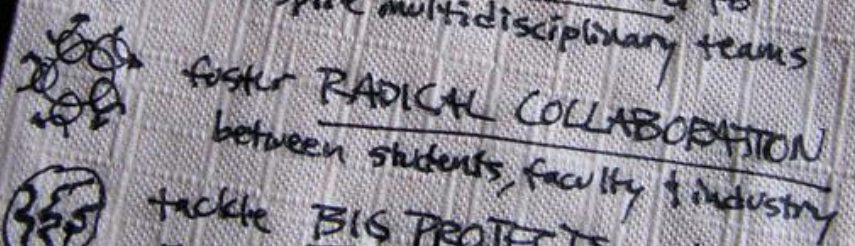 multidisciplinary teams
foster RADICAL COLLABORATION
between students, faculty & industry
tackle BIG PROJECTS